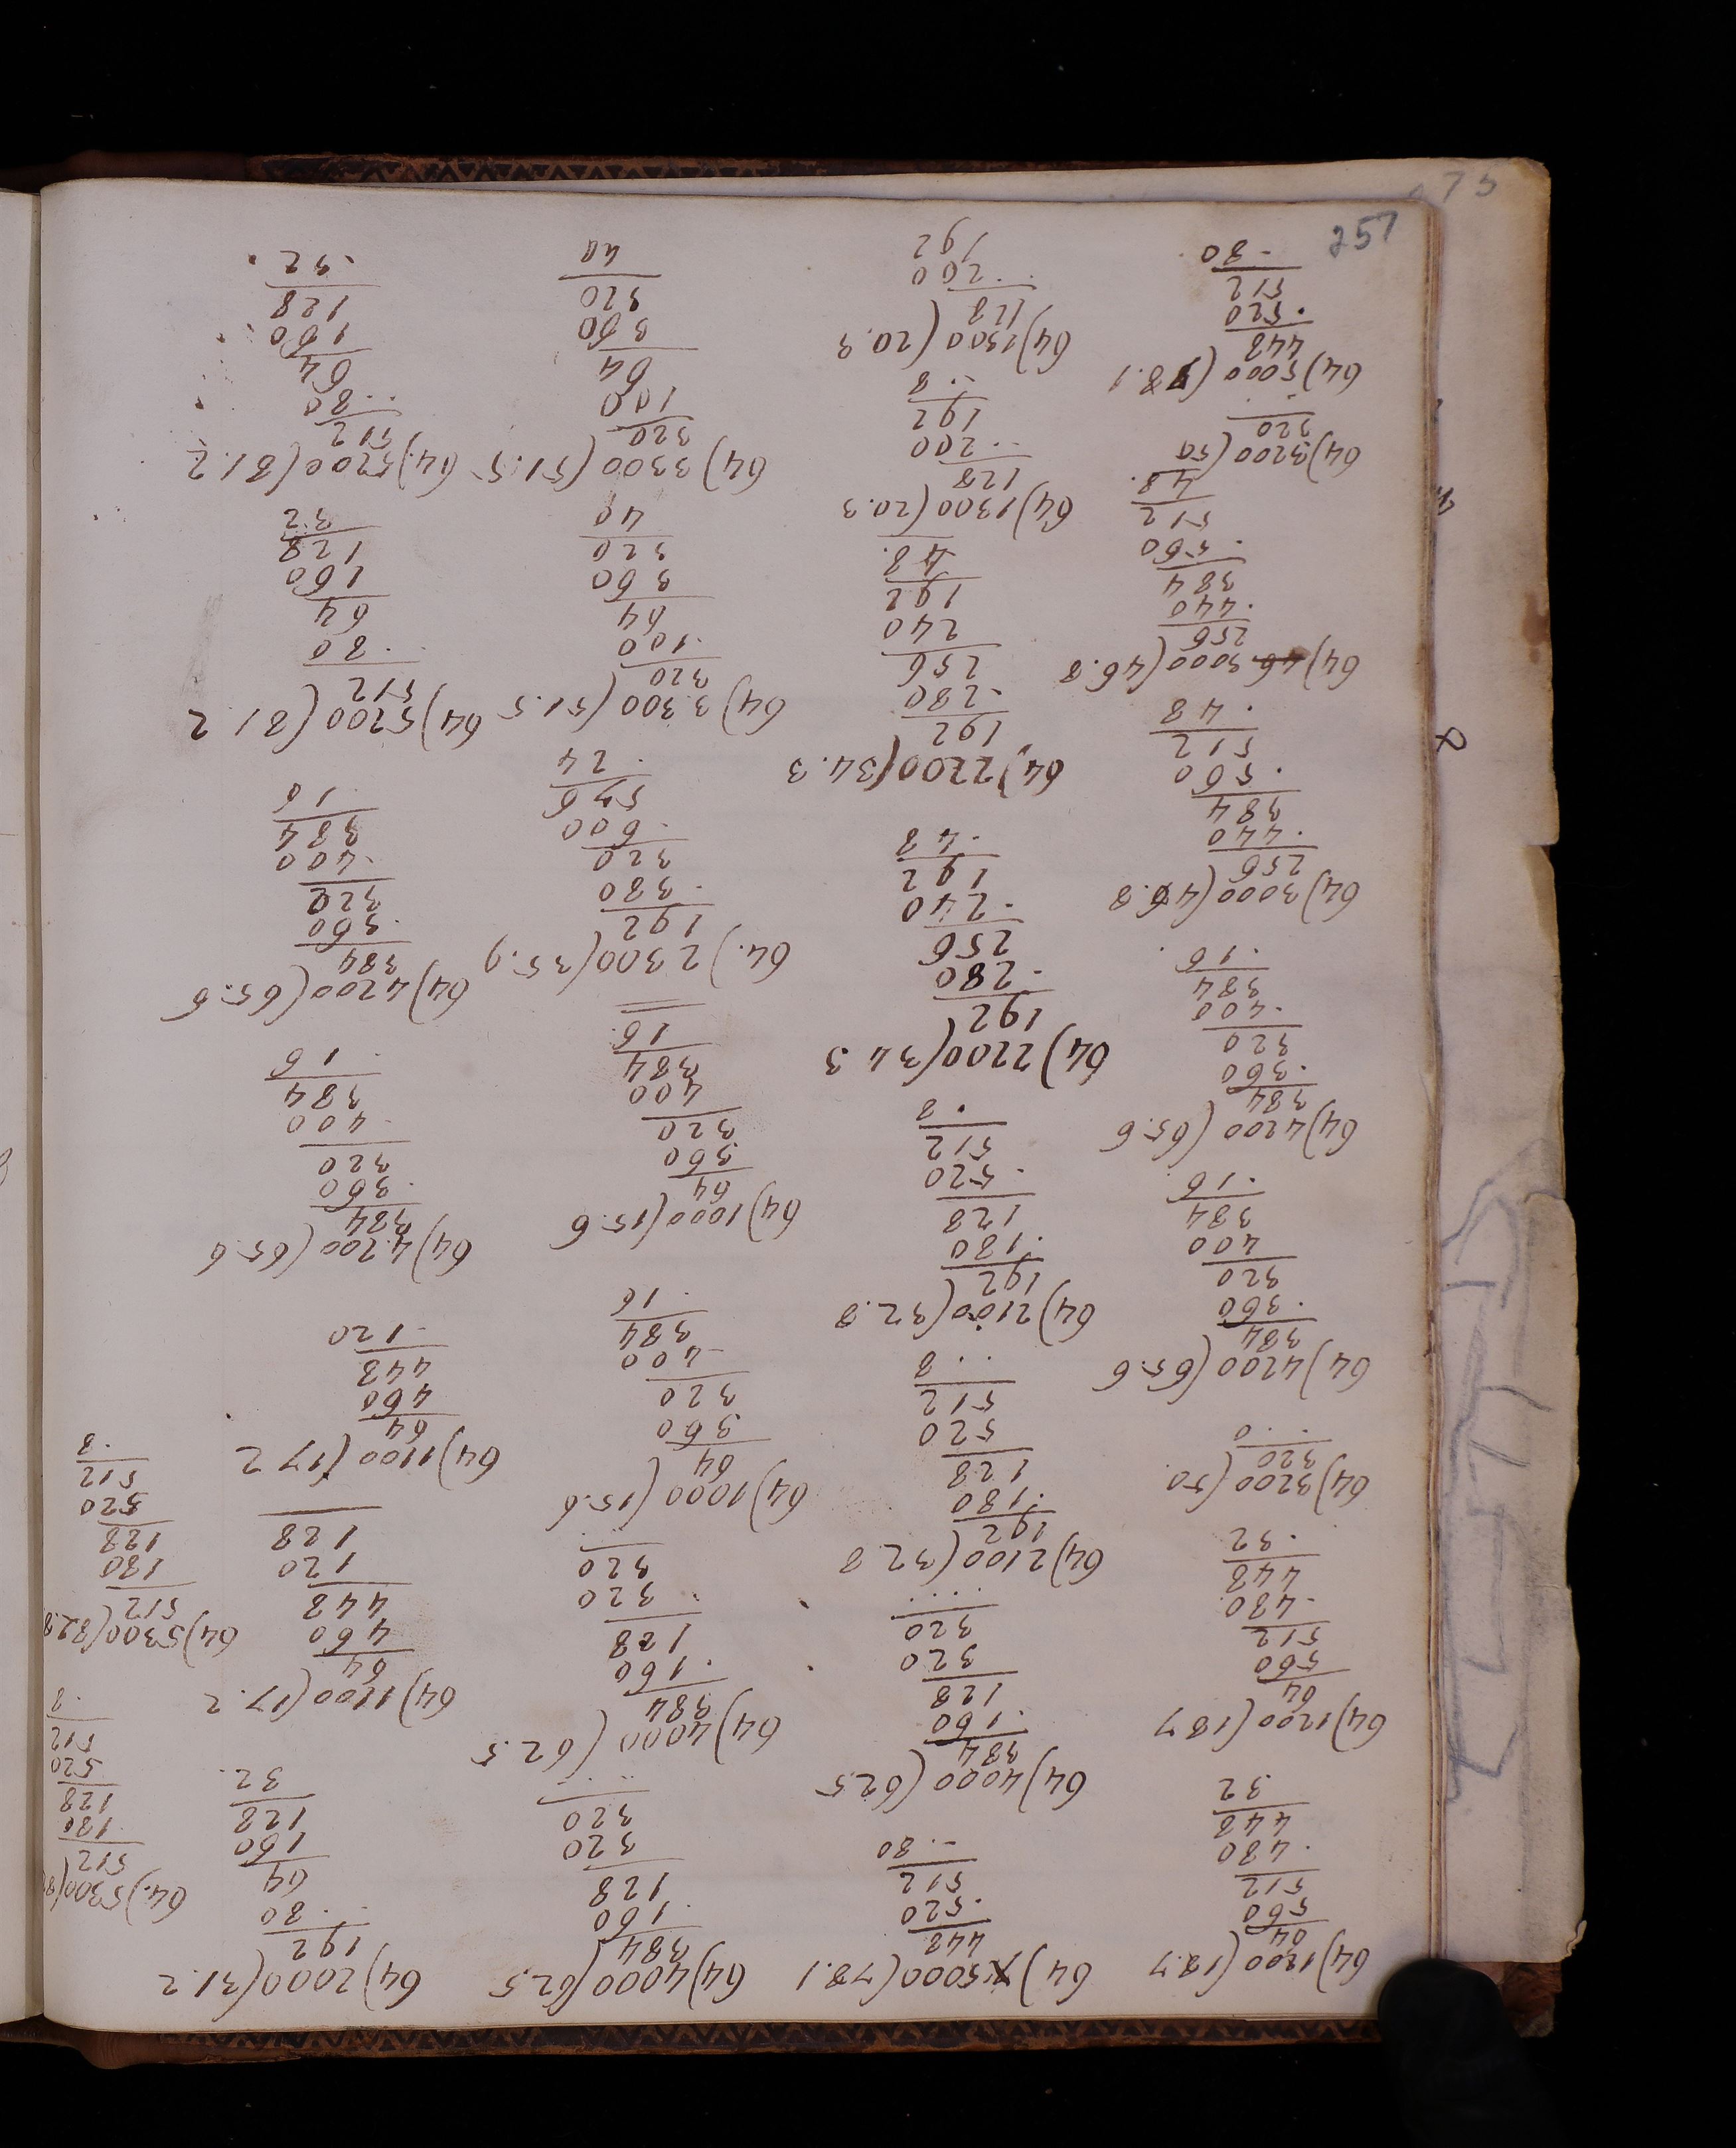 64)1200(18.7
64
560
512
.480
448
32
64)1200(187
64
560
512
.480
448
.32
64)3200(50
320
..0
64)4200(65.6
384
.360
320
400
384
.16
64)4200(65.6
384
.360
320
.400
384
.16
64)3000(46.8
256
.440
384
.560
512
.48
64)46 3000(46.8
256
.440
384
.560
512
48.
64)3200(50
320
64)5000(78.1
448
.520
512
.80
64)5000(78.1
448
.520
512
..80
64)4000(62.5
384
.160
128
320
320
...
64)2100(32 8
192
.180
128
520
512
..8
64)2100(32.8
192
.180
128
.520
512
.8
64)2200(34 3
192
.280
256
.240
192
.48
64)2200(34.3
192
.280
256
240
192
48.
64)1300(20.3
128
..200
192
..8
64)1300(20.3
128
..200
192
64)4000(62.5
384
.160
128
320
320
...
64)4000(62.5
384
.160
128
.320
320
...
64)1000(15.6
64
360
320
.400
384
.16
64)1000(15.6
64
360
320
400
384
16
64.)2300(35.9
192
.380
320
.600
576
.24
64)3300(51.5
320
.100
64
360
320
40
64)3300(51.5
320
100
64
360
320
40
64)2000(31.2
192
..80
64
160
128
32.
64)1100(17.2
64
460
448
120
128
64)1100(17 2
64
460
448
.120
64)4200(65.6
384
.360
320
.400
384
.16
64)4200(65.6
384
.360
320
.400
384
16
64)5200(81.2
512
.80
64
160
128
32
64)5200(81.2
512
..80
64
160
128
.32
64.)5300(8
512
.180
128
520
512
.8
64)5300(82.8
512
180
128
520
512
.8
257
75